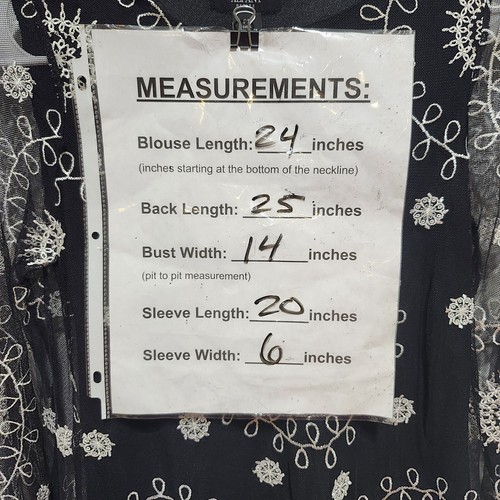 MEASUREMENTS:
Blouse Length: 24 inches
(inches starting at the bottom of the neckline)
Back Length: 25 inches
Bust Width: 14 inches
(pit to pit measurement)
Sleeve Length: 20 inches
Sleeve Width: 6 inches